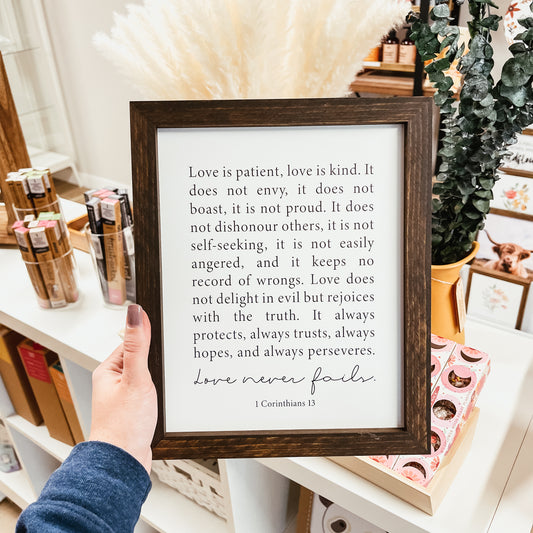 Love is patient, love is kind. It
does not envy, it does not
boast, it is not proud. It does
not dishonour others, it is not
self-seeking, it is not easily
angered, and it keeps no
record of wrongs. Love does
not delight in evil but rejoices
with the truth. It always
protects, always trusts, always
hopes, and always perseveres.
Love never fails.
1 Corinthians 13